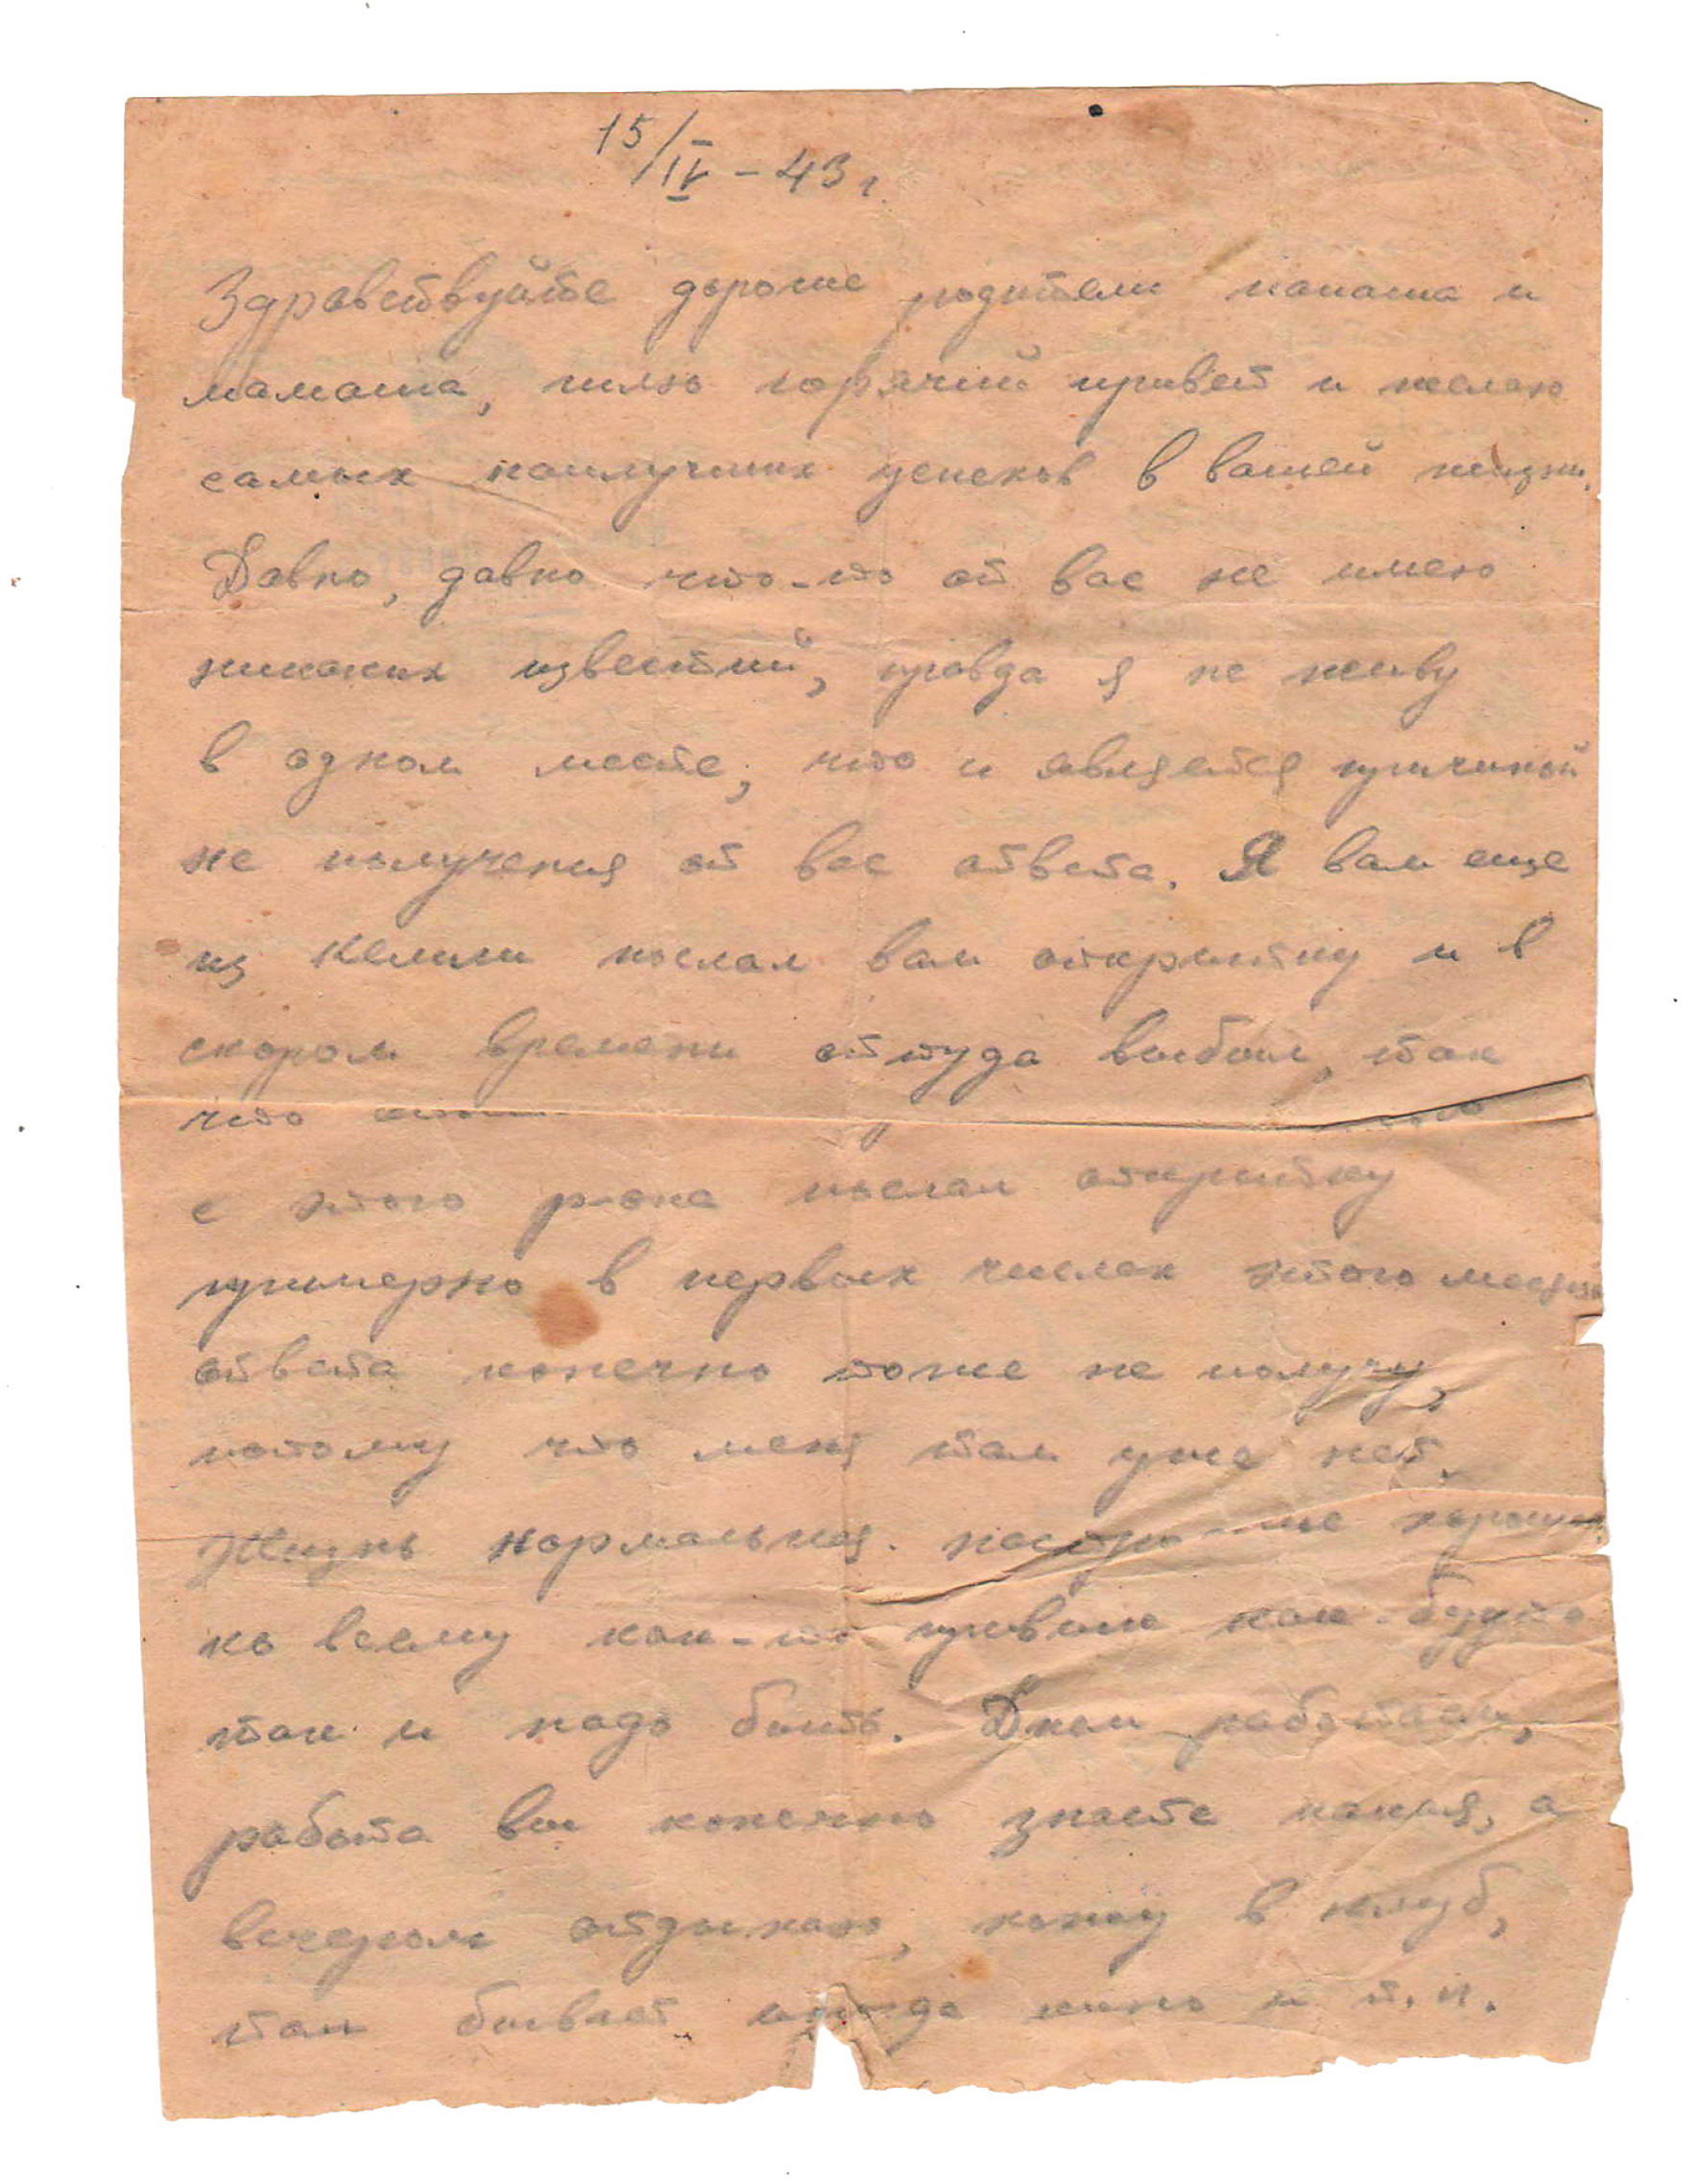 15/IV – 43 г.
Здравствуйте дорогие родители папаша и
мамаша, шлю горячий привет и желаю
самых наилучших успехов в вашей жизни.
Давно, давно что-то от вас не имею
никаких известий, правда я не живу
в одном месте, что и является причиной
не получения от вас ответа. Я вам еще
из послал вам открытку и в
скором времени оттуда выбыл, так
что
с этого послал открытку
примерно в первых числах этого месяца
ответа конечно тоже не получу,
потому что меня там уже нет.
Жизнь нормальная. настроение хорошее
ко всему как-то привык как будто
так и надо быть. Днем работаем,
работа вы конечно знаете какая, а
вечером отдыхаю, хожу в клуб,
там бывает иногда кино и т.п.